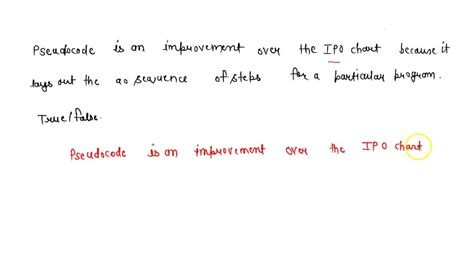 Pseudocode is an improvement over the IPO chart because it
lays out the ao sequence of steps for a particular program.
True/false.
Pseudocode is an improvement over the IPO chart